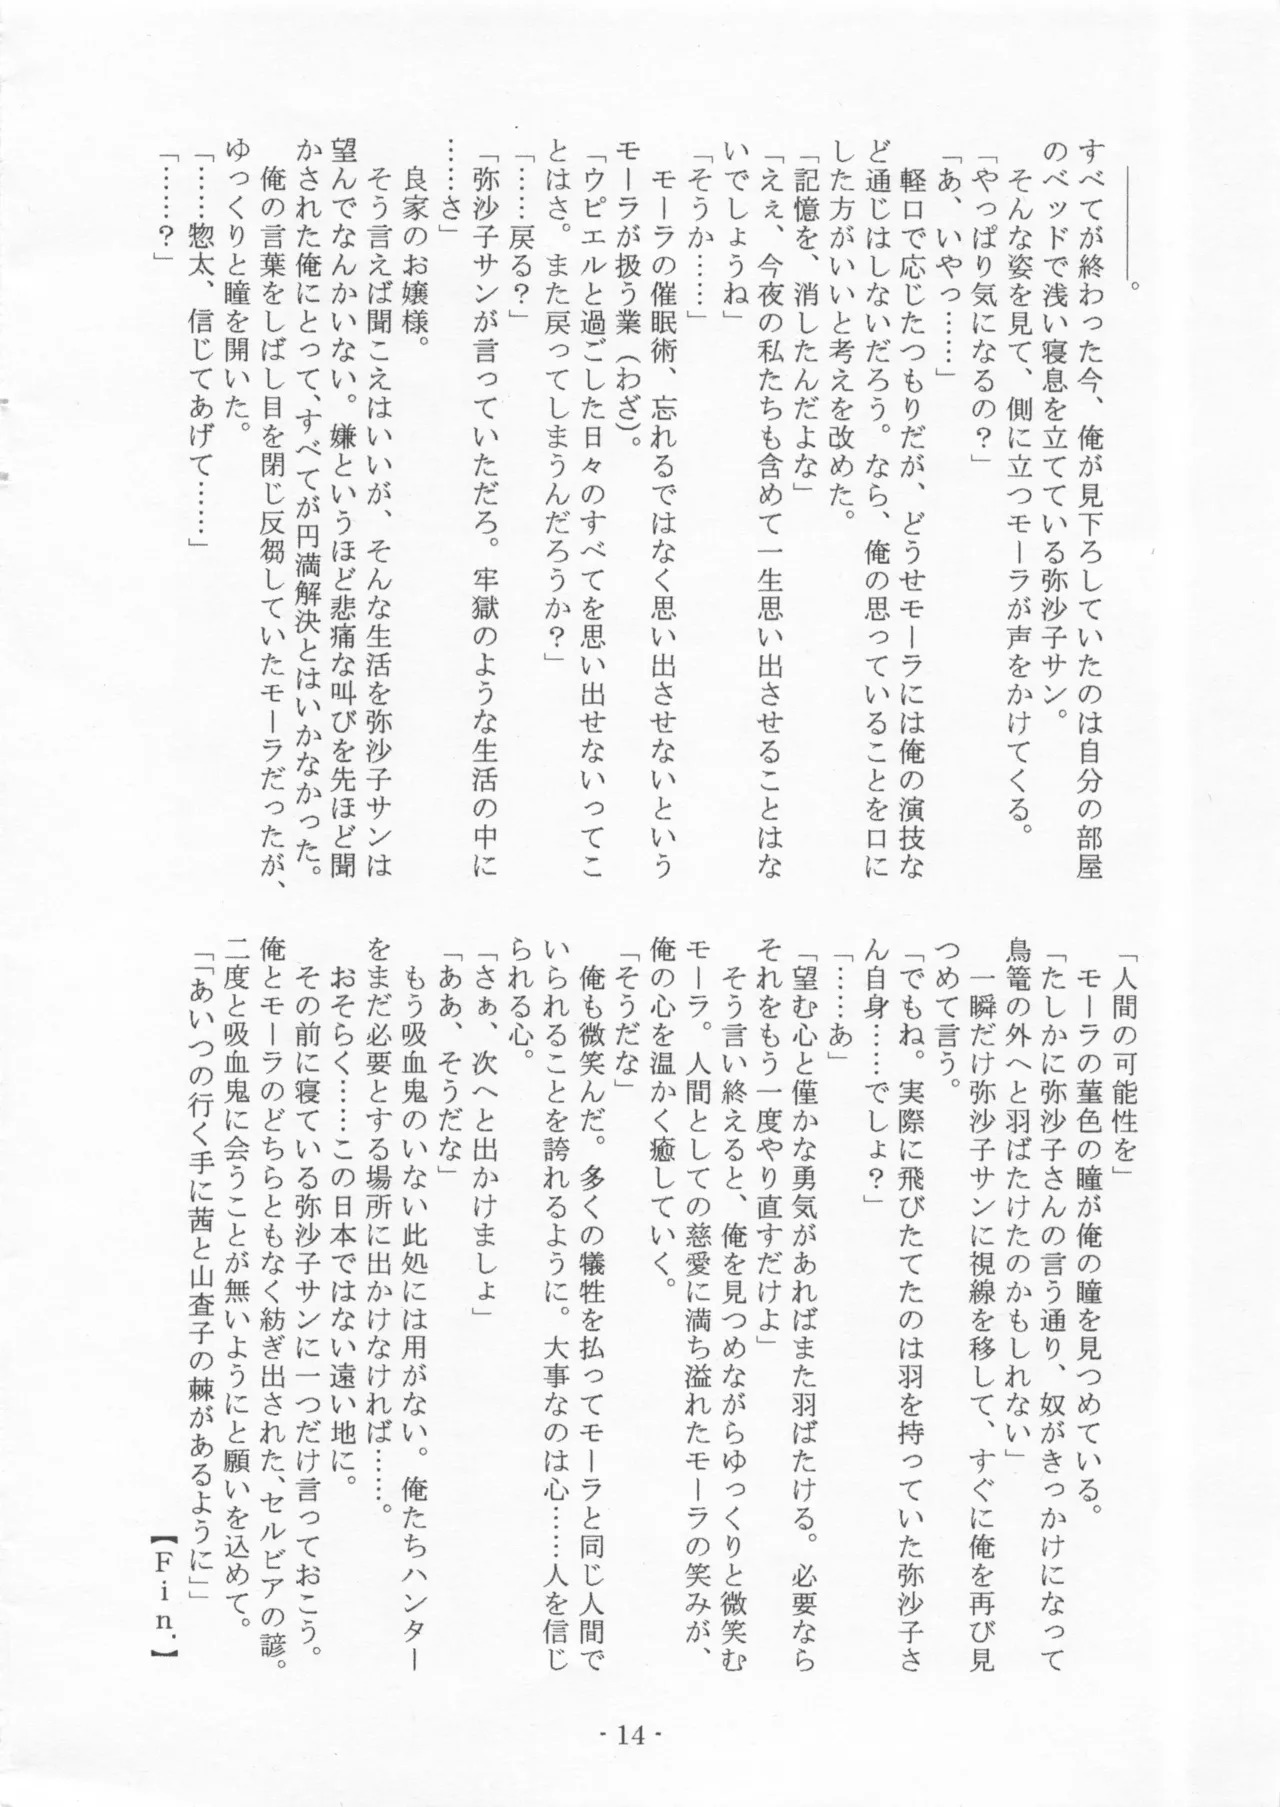 ――――――。
すべてが終わった今、俺が見下ろしていたのは自分の部屋
のベッドで浅い寝息を立てている弥沙子サン。
そんな姿を見て、側に立つモーラが声をかけてくる。
「やっぱり気になるの？」
「あ、いやっ……」
軽口で応じたつもりだが、どうせモーラには俺の演技な
ど通じはしないだろう。なら、俺の思っていることを口に
した方がいいと考えを改めた。
「記憶を、消したんだよな」
「えぇ、今夜の私たちも含めて一生思い出させることはな
いでしょうね」
「そうか……」
モーラの催眠術、忘れるではなく思い出させないという
モーラが扱う業（わざ）。
「ウピエルと過ごした日々のすべてを思い出せないってこ
とはさ。また戻ってしまうんだろうか？」
「……戻る？」
「弥沙子サンが言っていただろ。牢獄のような生活の中に
……さ」
良家のお嬢様。
そう言えば聞こえはいいが、そんな生活を弥沙子サンは
望んでなんかいない。嫌というほど悲痛な叫びを先ほど聞
かされた俺にとって、すべてが円満解決とはいかなかった。
俺の言葉をしばし目を閉じ反芻していたモーラだったが、
ゆっくりと瞳を開いた。
「……惣太、信じてあげて……」
「……？」
「人間の可能性を」
モーラの菫色の瞳が俺の瞳を見つめている。
「たしかに弥沙子さんの言う通り、奴がきっかけになって
鳥篭の外へと羽ばたけたのかもしれない」
一瞬だけ弥沙子サンに視線を移して、すぐに俺を再び見
つめて言う。
「でもね。実際に飛びたてたのは羽を持っていた弥沙子さ
ん自身……でしょ？」
「……あ」
「望む心と僅かな勇気があればまた羽ばたける。必要なら
それをもう一度やり直すだけよ」
そう言い終えると、俺を見つめながらゆっくりと微笑む
モーラ。人間としての慈愛に満ち溢れたモーラの笑みが、
俺の心を温かく癒していく。
「そうだな」
俺も微笑んだ。多くの犠牲を払ってモーラと同じ人間で
いられることを誇れるように。大事なのは心……人を信じ
られる心。
「さぁ、次へと出かけましょ」
「ああ、そうだな」
もう吸血鬼のいない此処には用がない。俺たちハンター
をまだ必要とする場所に出かけなければ……。
おそらく……この日本ではない遠い地に。
その前に寝ている弥沙子サンに一つだけ言っておこう。
俺とモーラのどちらともなく紡ぎ出された、セルビアの諺。
二度と吸血鬼に会うことが無いようにと願いを込めて。
「「あいつの行く手に茜と山査子の棘があるように」」
【Ｆｉｎ．】
- 14 -